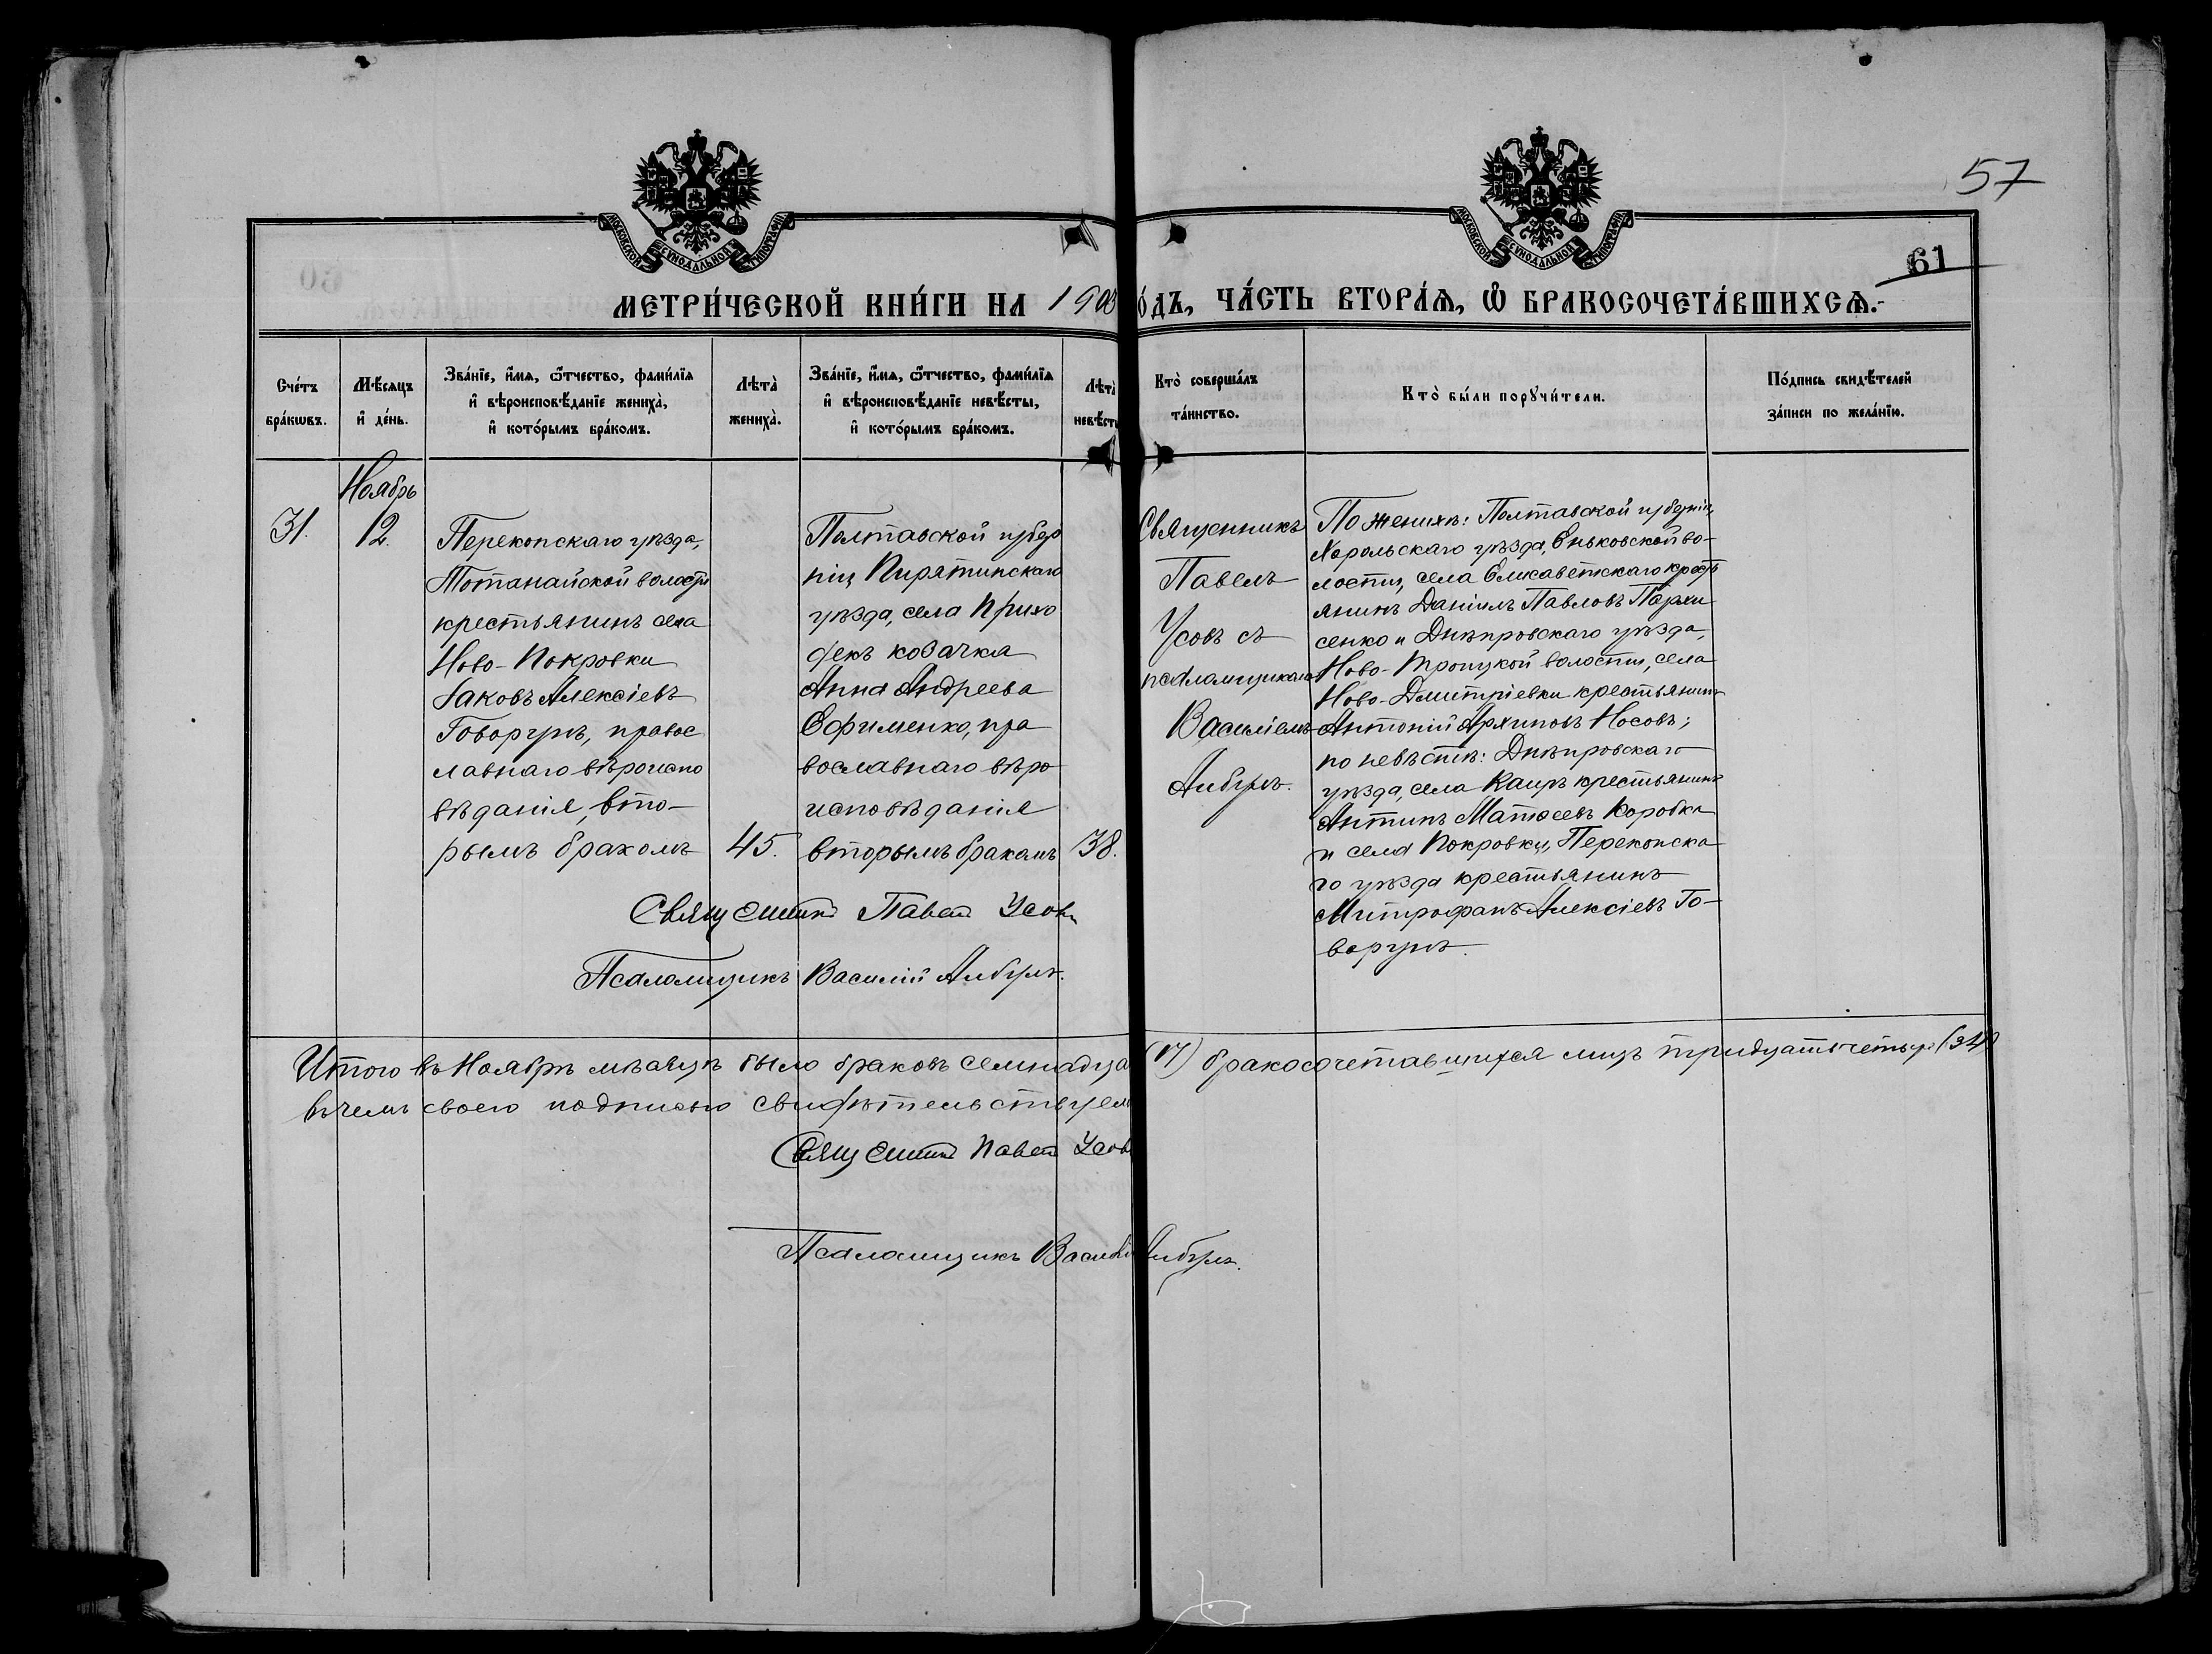 57
61
МОСКОВСКОЙ СѴНОДАЛЬНОЙ ТИПОГРАФІИ
МОСКОВСКОЙ СѴНОДАЛЬНОЙ ТИПОГРАФІИ
МЕТРИ́ЧЕСКОЙ КНИ́ГИ НА 190
О́ДЪ, ЧА́СТЬ ВТОРА́Я, Ѿ БРАКОСОЧЕТА́ВШИХСЯ.
Сче́тъ
бра́кѡвъ.
Мѣ́сяцъ
и҆ де́нь.
Зва́нїе, и҆́мѧ, ѻ҆́тчество, фами́лїѧ
и҆ вѣроисповѣ́данїе жениха̀,
и҆ кото́рымъ бра́комъ.
Лѣта̀
жениха̀.
Зва́нїе, и҆́мѧ, ѻ҆́тчество, фами́лїѧ
и҆ вѣроисповѣ́данїе невѣ́сты,
и҆ кото́рымъ бра́комъ.
Лѣта̀
невѣ́ст
Кто̀ соверша́лъ
та́инство.
Кто̀ бы́ли порꙋчи́тели.
По́дпись свидѣ́телей
за́писи по жела́нїю.
31.
Ноябрь
12.
Перекопскаго уѣзда,
Тотанайской волости
крестьянинъ села
Ново-Покровки
Іаковъ Алексіевъ
Говорунъ, правос
лавнаго вѣроиспо
вѣданія, вто-
рымъ бракомъ
45.
Полтавской губер
ніи Пирятинскаго
уѣзда, села Прихо
декъ козачка
Анна Андреева
Ефименко, пра
вославнаго вѣро
исповѣданія
вторымъ бракомъ
38.
Священникъ
Павелъ
Усовъ съ
псаломщикомъ
Василіемъ
По женихѣ: Полтавской губерніи,
Хорольскаго уѣзда, Еньковской во-
лости, села Елисаветскаго крестъ
янинъ Даніилъ Павловъ Пархи
сенко и Днѣпровскаго уѣзда,
Ново-Троицкой волости, села
Ново-Дмитріевки крестьянинъ
Антоній Архиповъ Носовъ;
по невѣстѣ: Днѣпровскаго
уѣзда, села Каиръ крестьянинъ
Антипъ Матѳеевъ Коробка
и села Покровки, Перекопска
го уѣзда крестьянинъ
Митрофанъ Алексіевъ Го-
ворунъ.
Священникъ Павелъ Усовъ
Псаломщикъ Василій
Итого въ Ноябрѣ мѣсяцѣ было браковъ семнадца (17) бракосочетавшихся лицъ тридцать четыре (34)
въ чемъ своею подписью свидѣтельствуем
Священникъ Павелъ Усов
Псаломщикъ Василій